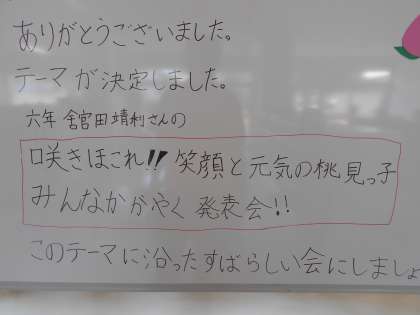 ありがとうございました。
テーマが決定しました。
六年 舘宮田靖利さんの
咲きほこれ!! 笑顔と元気の桃見っ子
みんなかがやく 発表会!!
このテーマに沿ったすばらしい会にしましょ